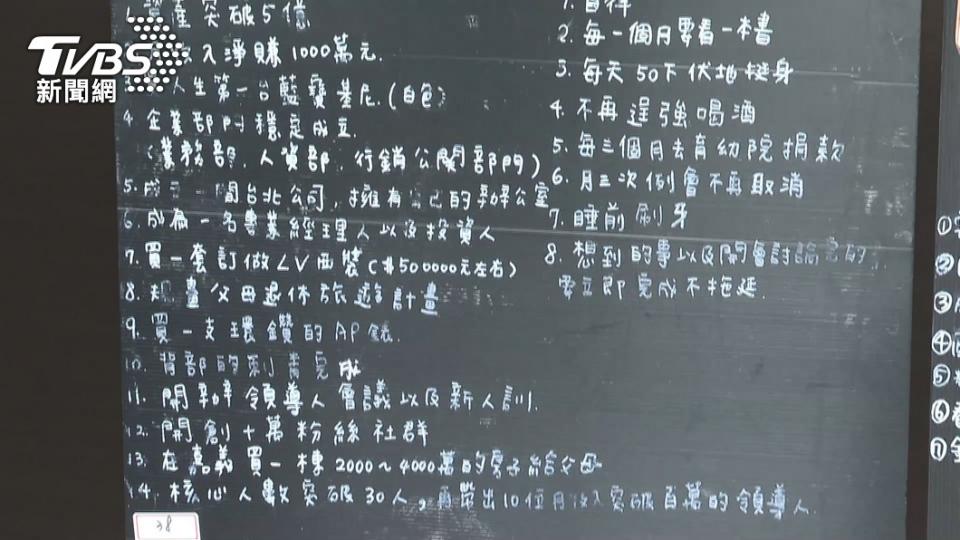 TVBS
新聞網
1. 資產突破5億
入淨賺1000萬元.
人生第一台藍寶基尼.(白色)
4. 企業部門穩定成立.
(業務部.人資部.行銷公關部門)
5. 成立一間台北公司,擁有自己的辦公室
6. 成為一名專業經理人以及投資人
7. 買一套訂做LV西裝(#500000元左右)
8. 規畫父母退休旅遊計畫
9. 買一支環鑽的AP錶.
10. 背部的刺青完成
11. 開辦領導人會議以及新人訓.
12. 開創十萬粉絲社群
13. 在嘉義買一棟2000~4000萬的房子給父母
14. 核心人數突破30人,再帶出10位月收入突破百萬的領導人.
38
1. 自律
2. 每一個月要看一本書
3. 每天50下伏地挺身
4. 不再逞強喝酒
5. 每三個月去育幼院捐款
6. 月三次例會不再取消
7. 睡前刷牙
8. 想到的事以及開會討論完的,
要立即完成不拖延.
①
②
③
④
⑤
⑥
⑦